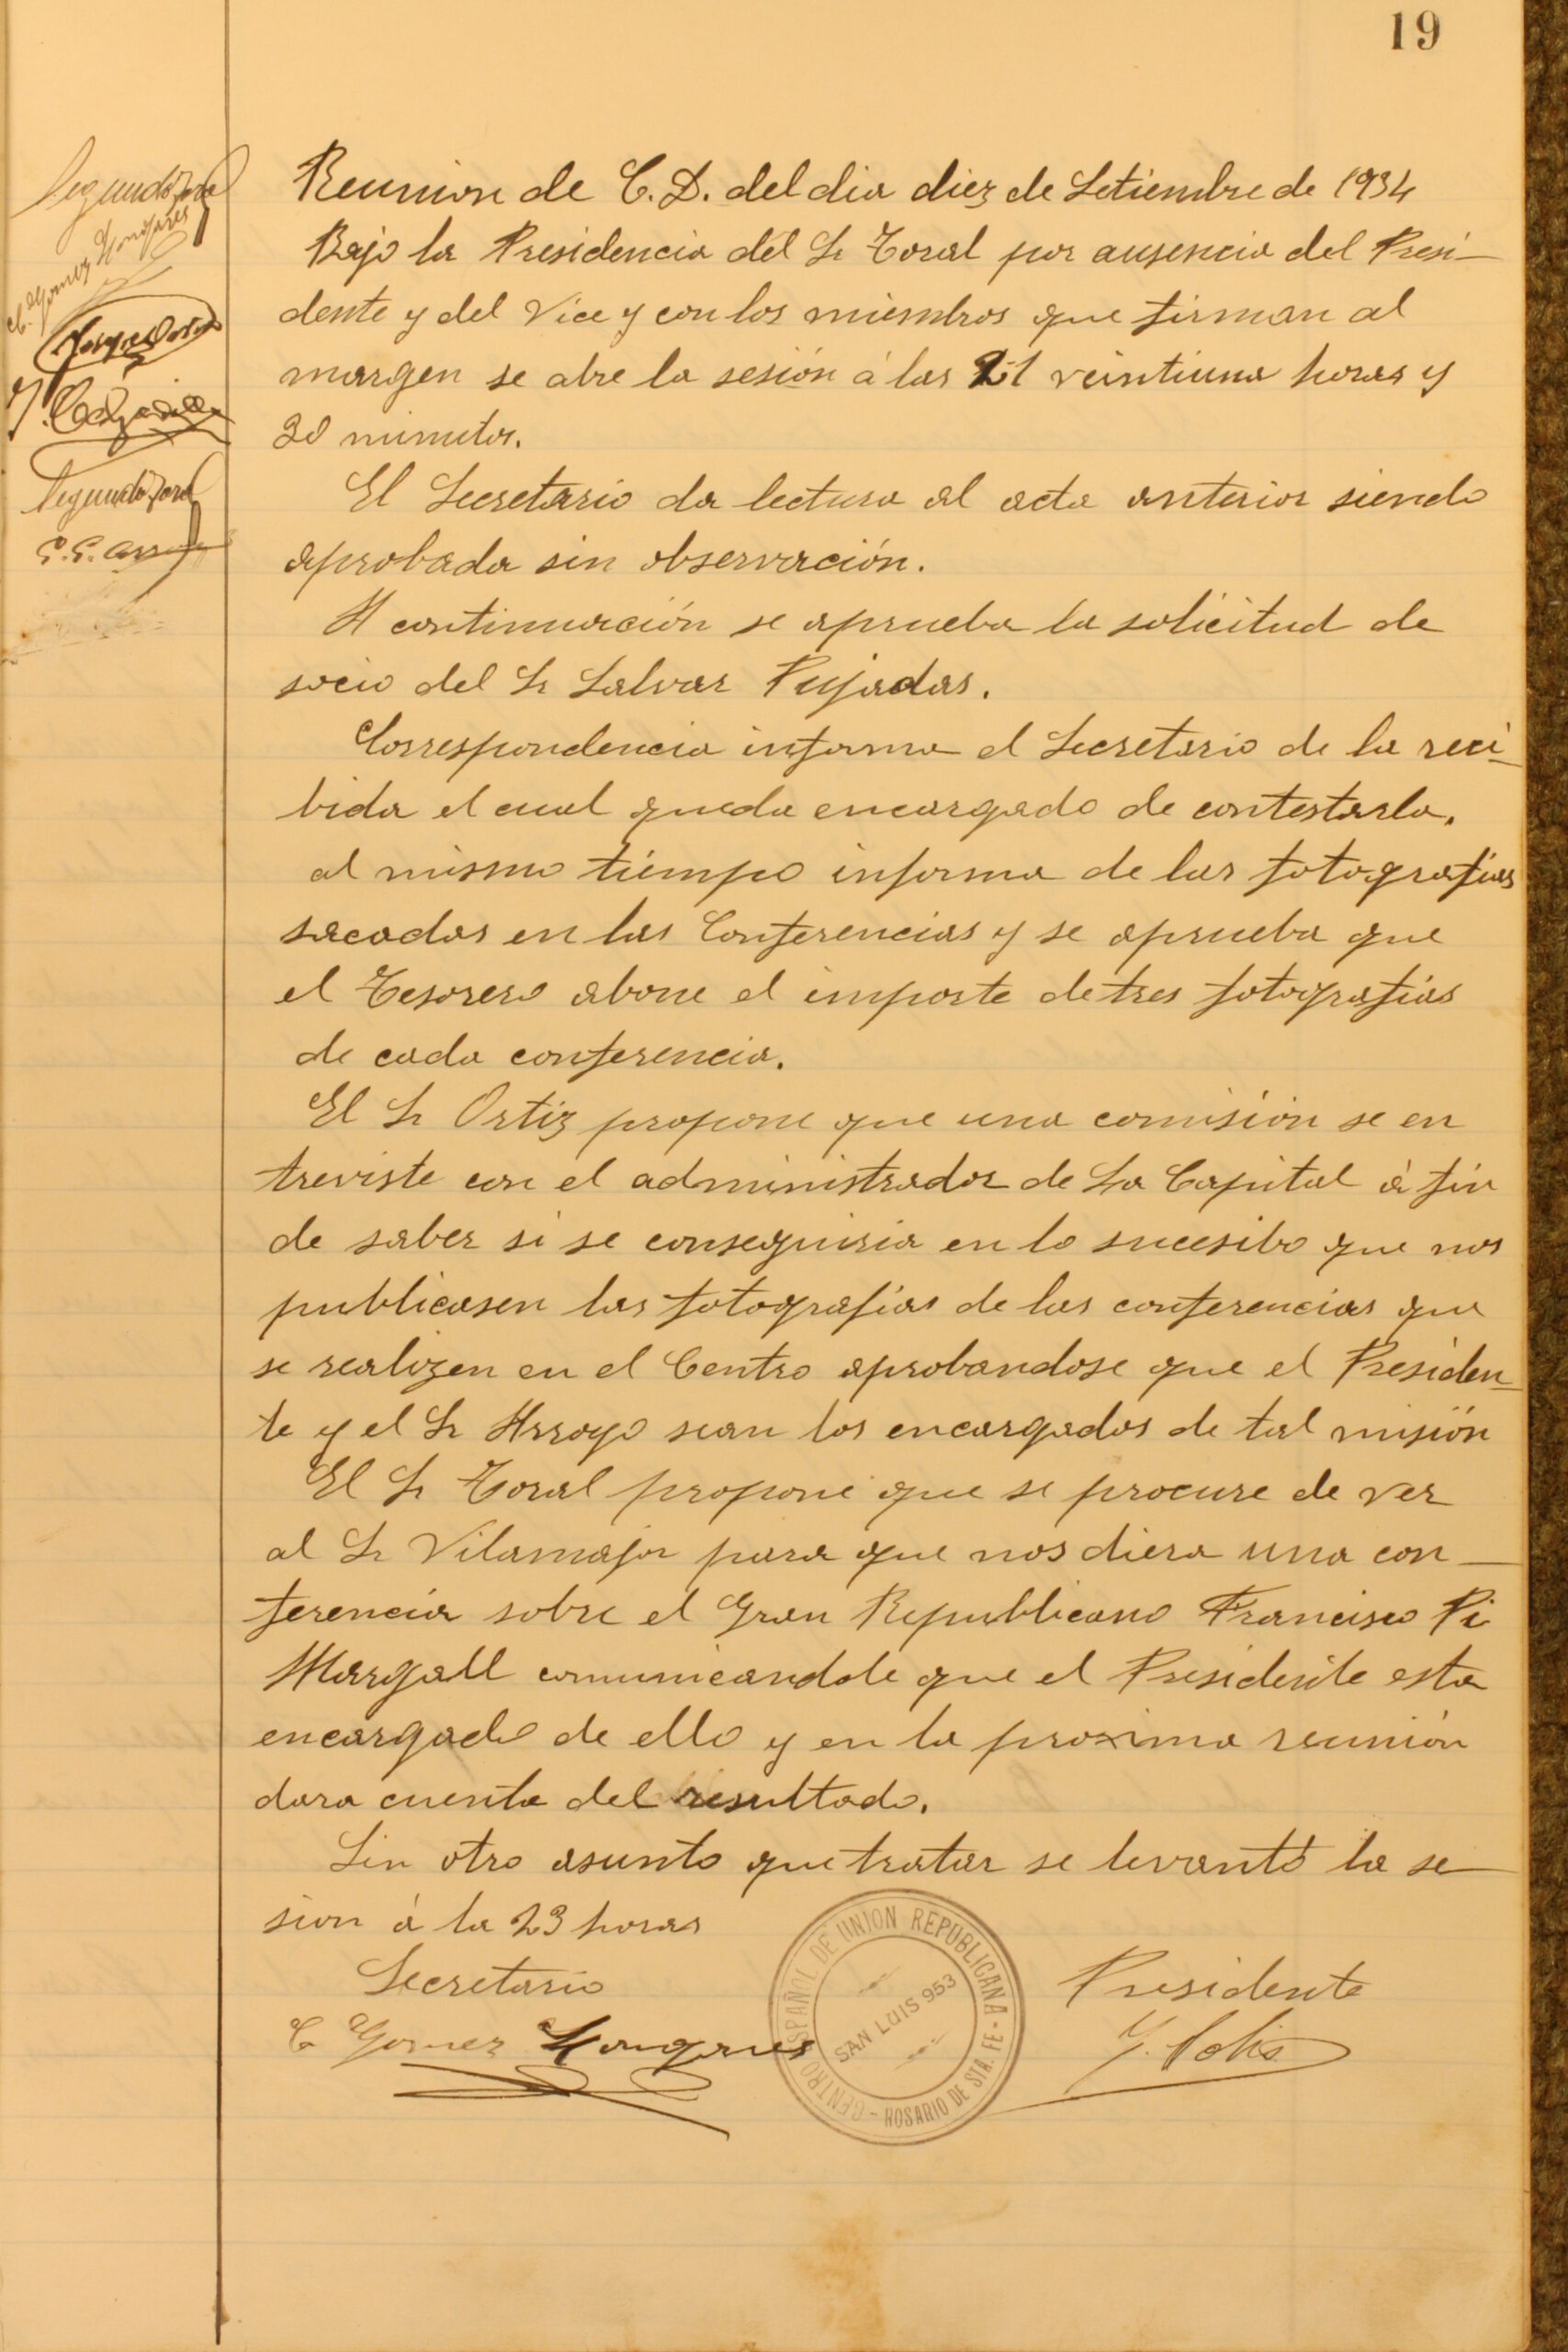 19
Reunion de C. D. del dia diez de Setiembre de 1934
Bajo la Presidencia del Sr Toral por ausencia del Presi-
dente y del Vice y con los miembros que firman al
margen se abre la sesión á las 21 veintiuna horas y
30 minutos.
El Secretario da lectura al acta anterior siendo
aprobada sin observación.
A continuación se aprueba la solicitud de
socio del Sr Salvar Pujadas.
Correspondencia informa el Secretario de la reci-
bida el cual queda encargado de contestarla.
al mismo tiempo informa de las fotografias
sacadas en las Conferencias y se aprueba que
el Tesorero abone el importe de tres fotografias
de cada conferencia.
El Sr Ortiz propone que una comisión se en
treviste con el administrador de La Capital á fin
de saber si se conseguiria en lo sucesibo que nos
publicasen las fotografias de las conferencias que
se realizen en el Centro aprobandose que el Presiden-
te y el Sr Arroyo sean los encargados de tal misión
El Sr Toral propone que se procure de ver
al Sr Vilamajor para que nos diera una con-
ferencia sobre el Gran Republicano Francisco Pi
Margall comunicandole que el Presidente esta
encargado de ello y en la proxima reunión
dara cuenta del resultado.
Sin otro asunto que tratar se levantó la se-
sion á la 23 horas
Secretario
Presidente
C Gomez
CENTRO ESPAÑOL DE UNION REPUBLICANA - ROSARIO DE STA. FE -
SAN LUIS 953
Segundo Toral
C. Gomez
Segundo Toral